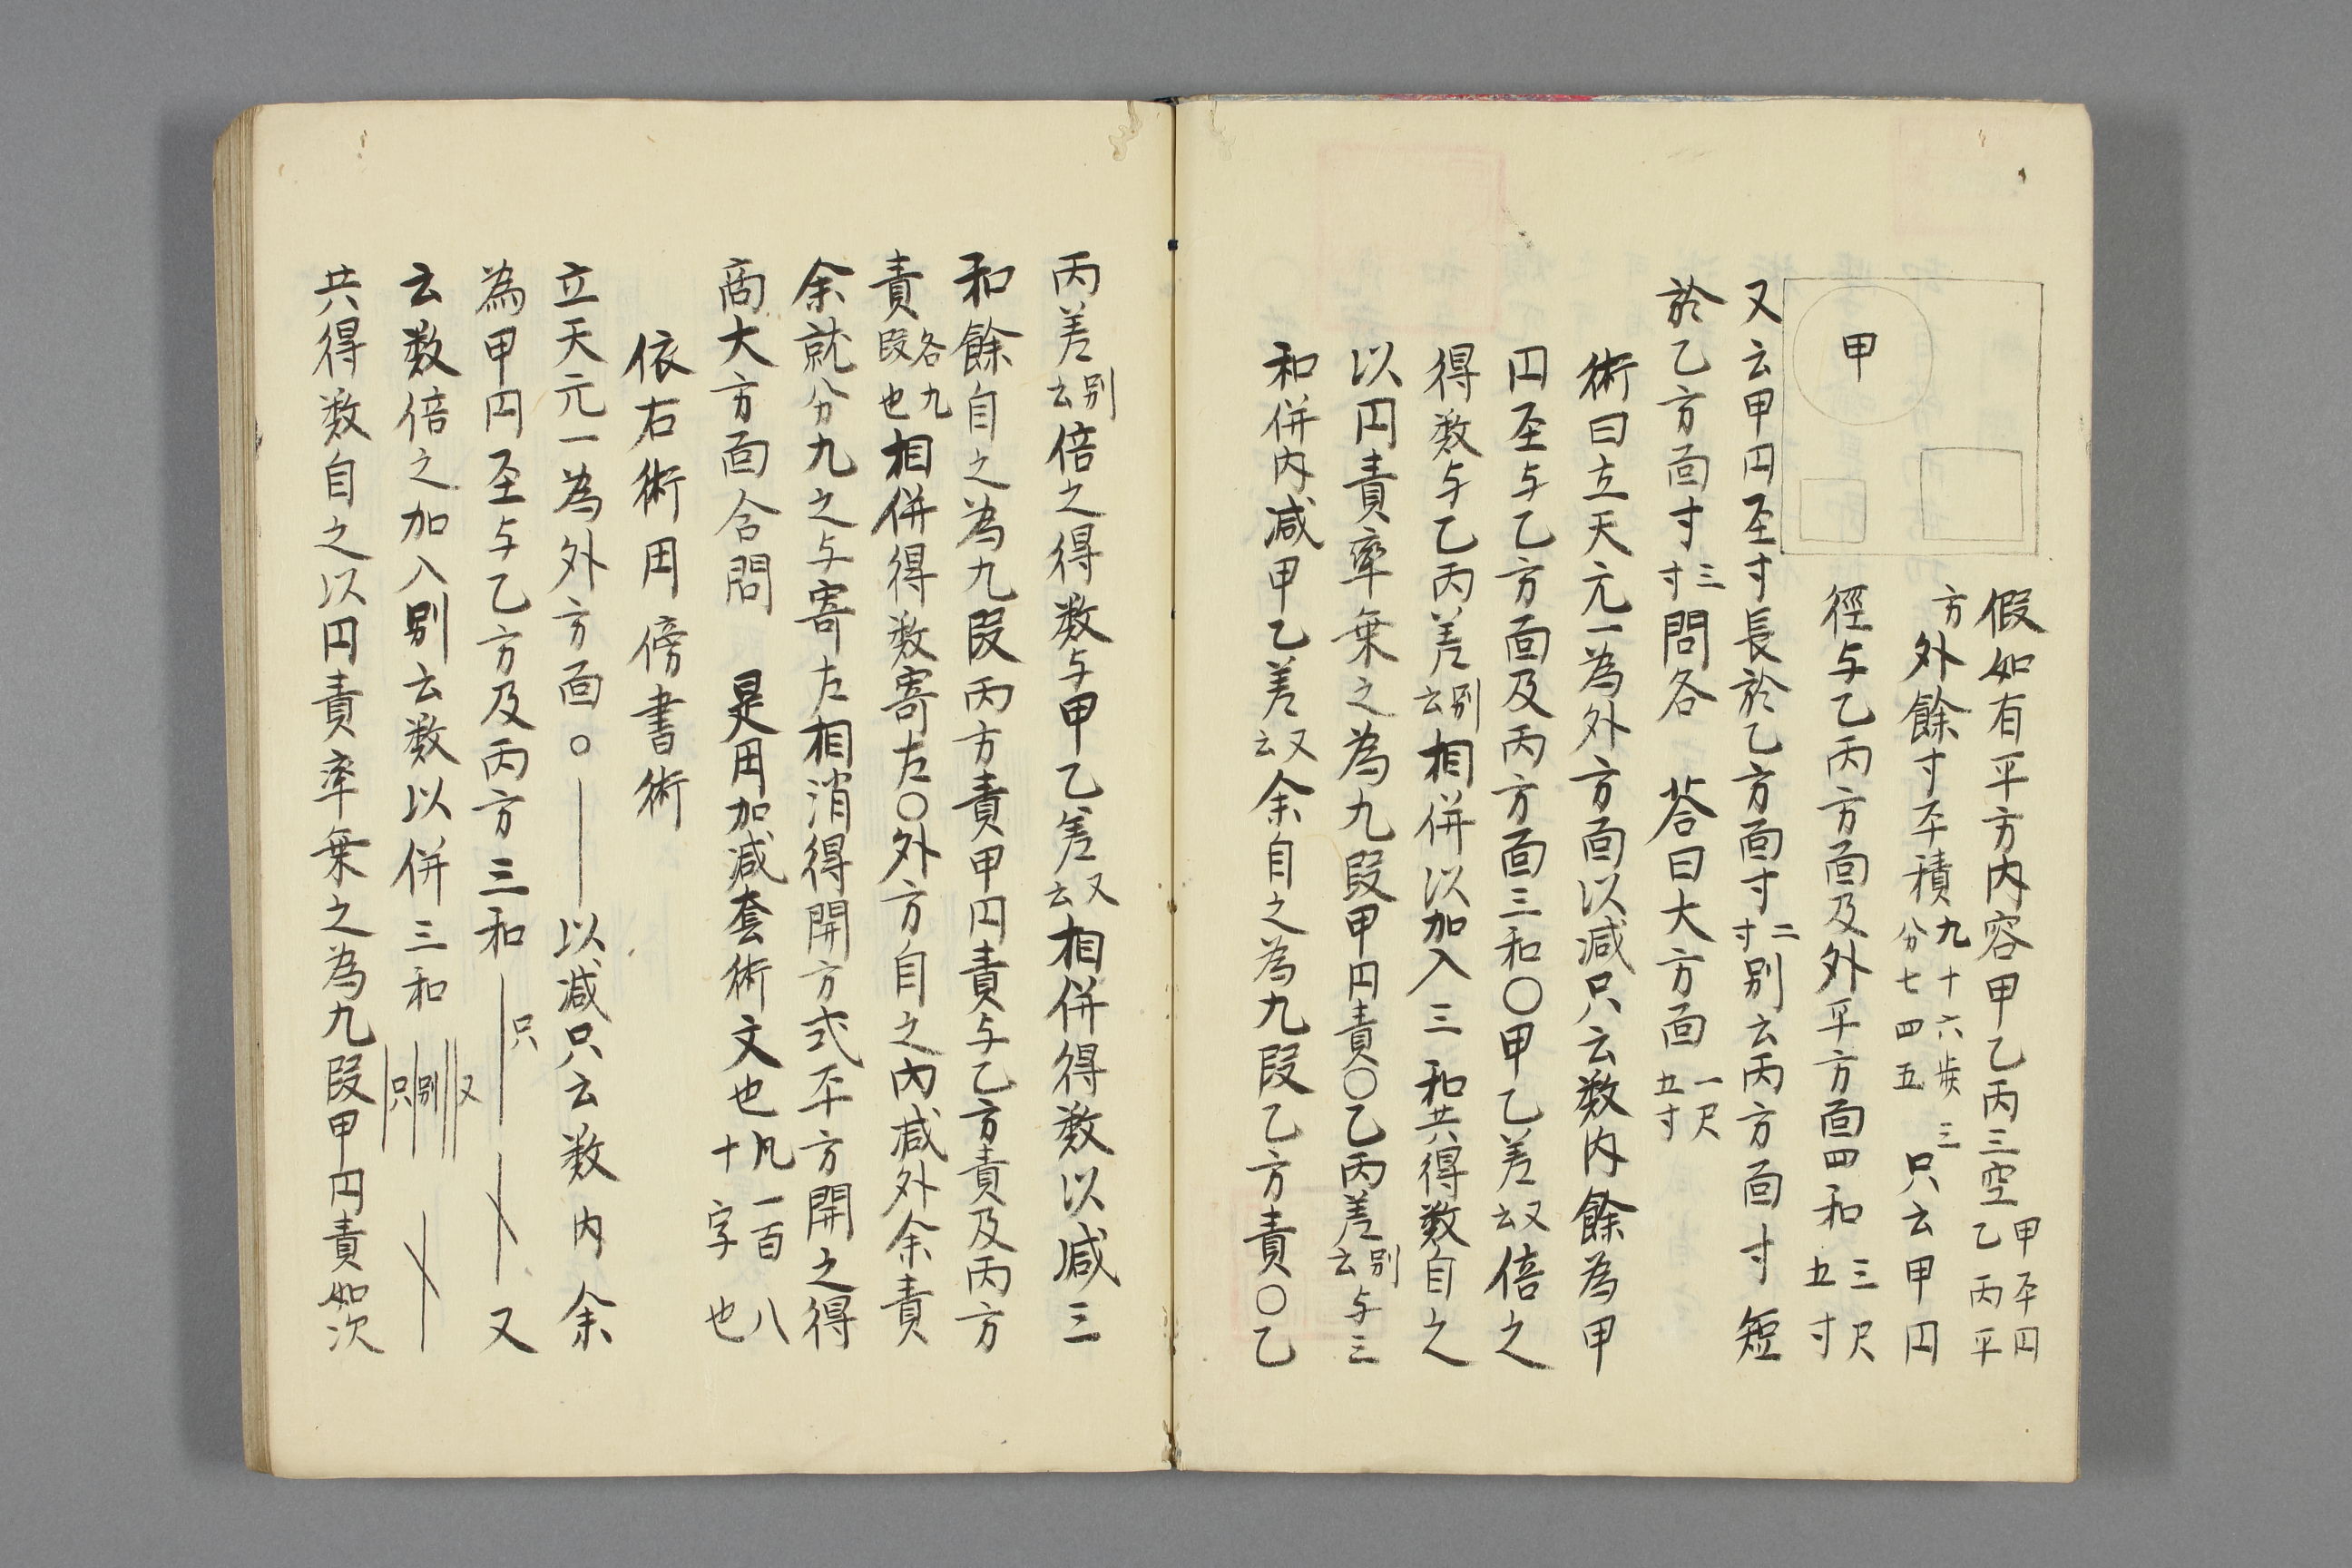 甲
假如有平方内容甲乙丙三空甲平円乙丙平
方外餘寸平積九十六歩三分七四五只云甲円
徑与乙丙方面及外平方面四和三尺五寸
又云甲円至寸長於乙方面寸二寸別云丙方面寸短
於乙方面寸三寸問各 荅曰大方面一尺五寸
術曰立天元一為外方面以減只云数内餘為甲
円至与乙方面及丙方面三和〇甲乙差又云倍之
得数与乙丙差別云相併以加入三和共得数自之
以円責率乗之為九段甲円責〇乙丙差別云与三
和併内減甲乙差又云余自之為九段乙方責〇乙
丙差別云倍之得数与甲乙差又云相併得数以減三
和餘自之為九段丙方責甲円責与乙方責及丙方
責各九段也相併得数寄左〇外方自之内減外余責
余就分九之与寄左相消得開方式平方開之得
商大方面合問 是用加減套術文也凡一百八十字也
依右術用傍書術
立天元一為外方面〇｜以減只云数内余
為甲円至与乙方及丙方三和｜只 又
云数倍之加入別云数以併三和 又 別 只
共得数自之以円責率乗之為九段甲円責如次